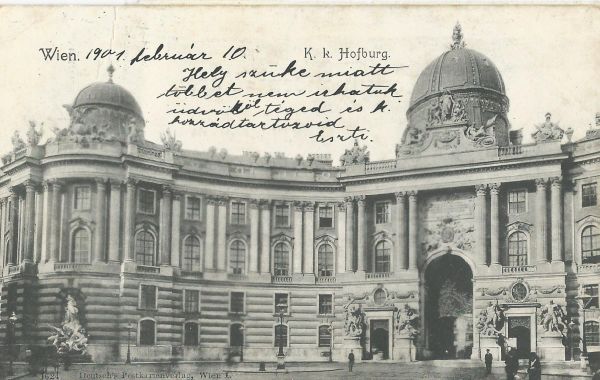 Wien. 1901. február 10.
K. k. Hofburg.
Hely szüke miatt
többet nem irhatok
üdvözöl téged és k.
hozzádtartozóid
Eszti.
Deutsch's Postkartenverlag, Wien I.